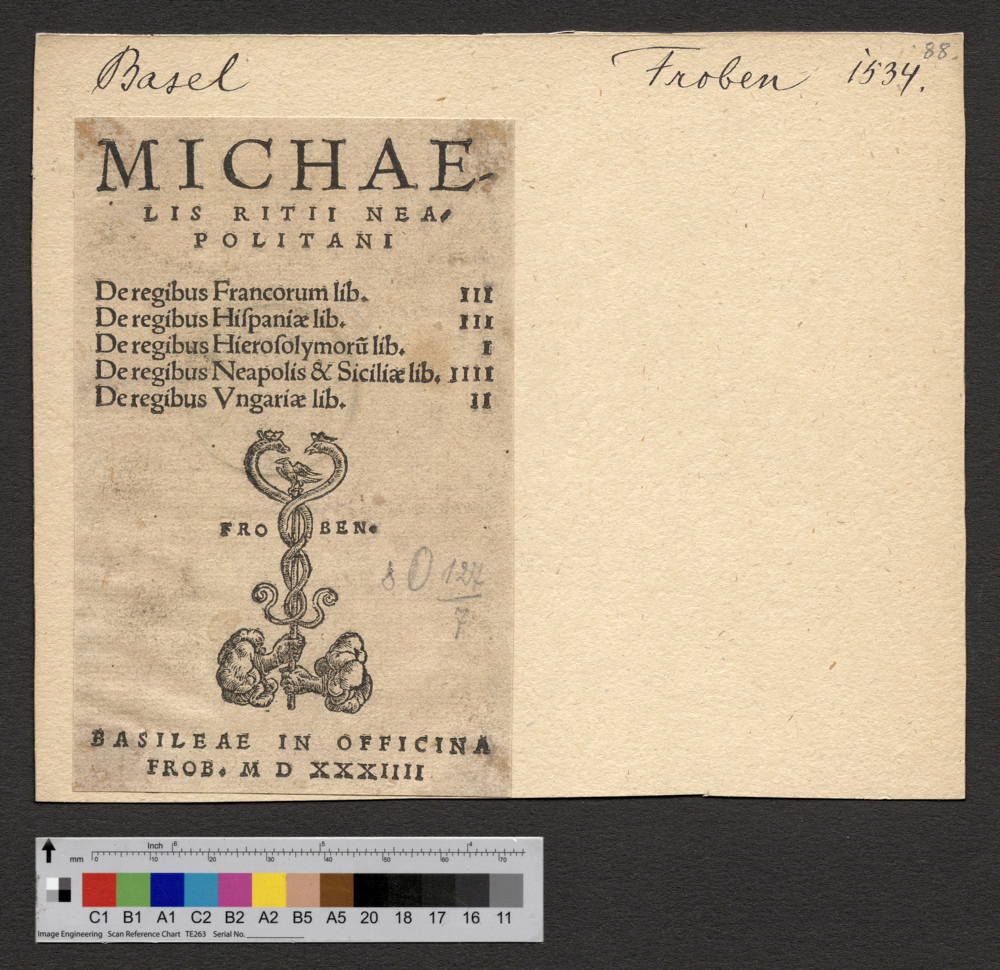 Basel
Froben 1534.
88.
MICHAE-
LIS RITII NEA-
POLITANI
De regibus Francorum lib. III
De regibus Hiſpaniæ lib. III
De regibus Hieroſolymorū lib. I
De regibus Neapolis & Siciliæ lib. IIII
De regibus Vngariæ lib. II
FRO BEN.
8 O 127
7
BASILEAE IN OFFICINA
FROB. M D XXXIIII
Inch 6 5 4
mm 0 10 20 30 40 50 60 70
C1 B1 A1 C2 B2 A2 B5 A5 20 18 17 16 11
Image Engineering Scan Reference Chart TE263 Serial No.